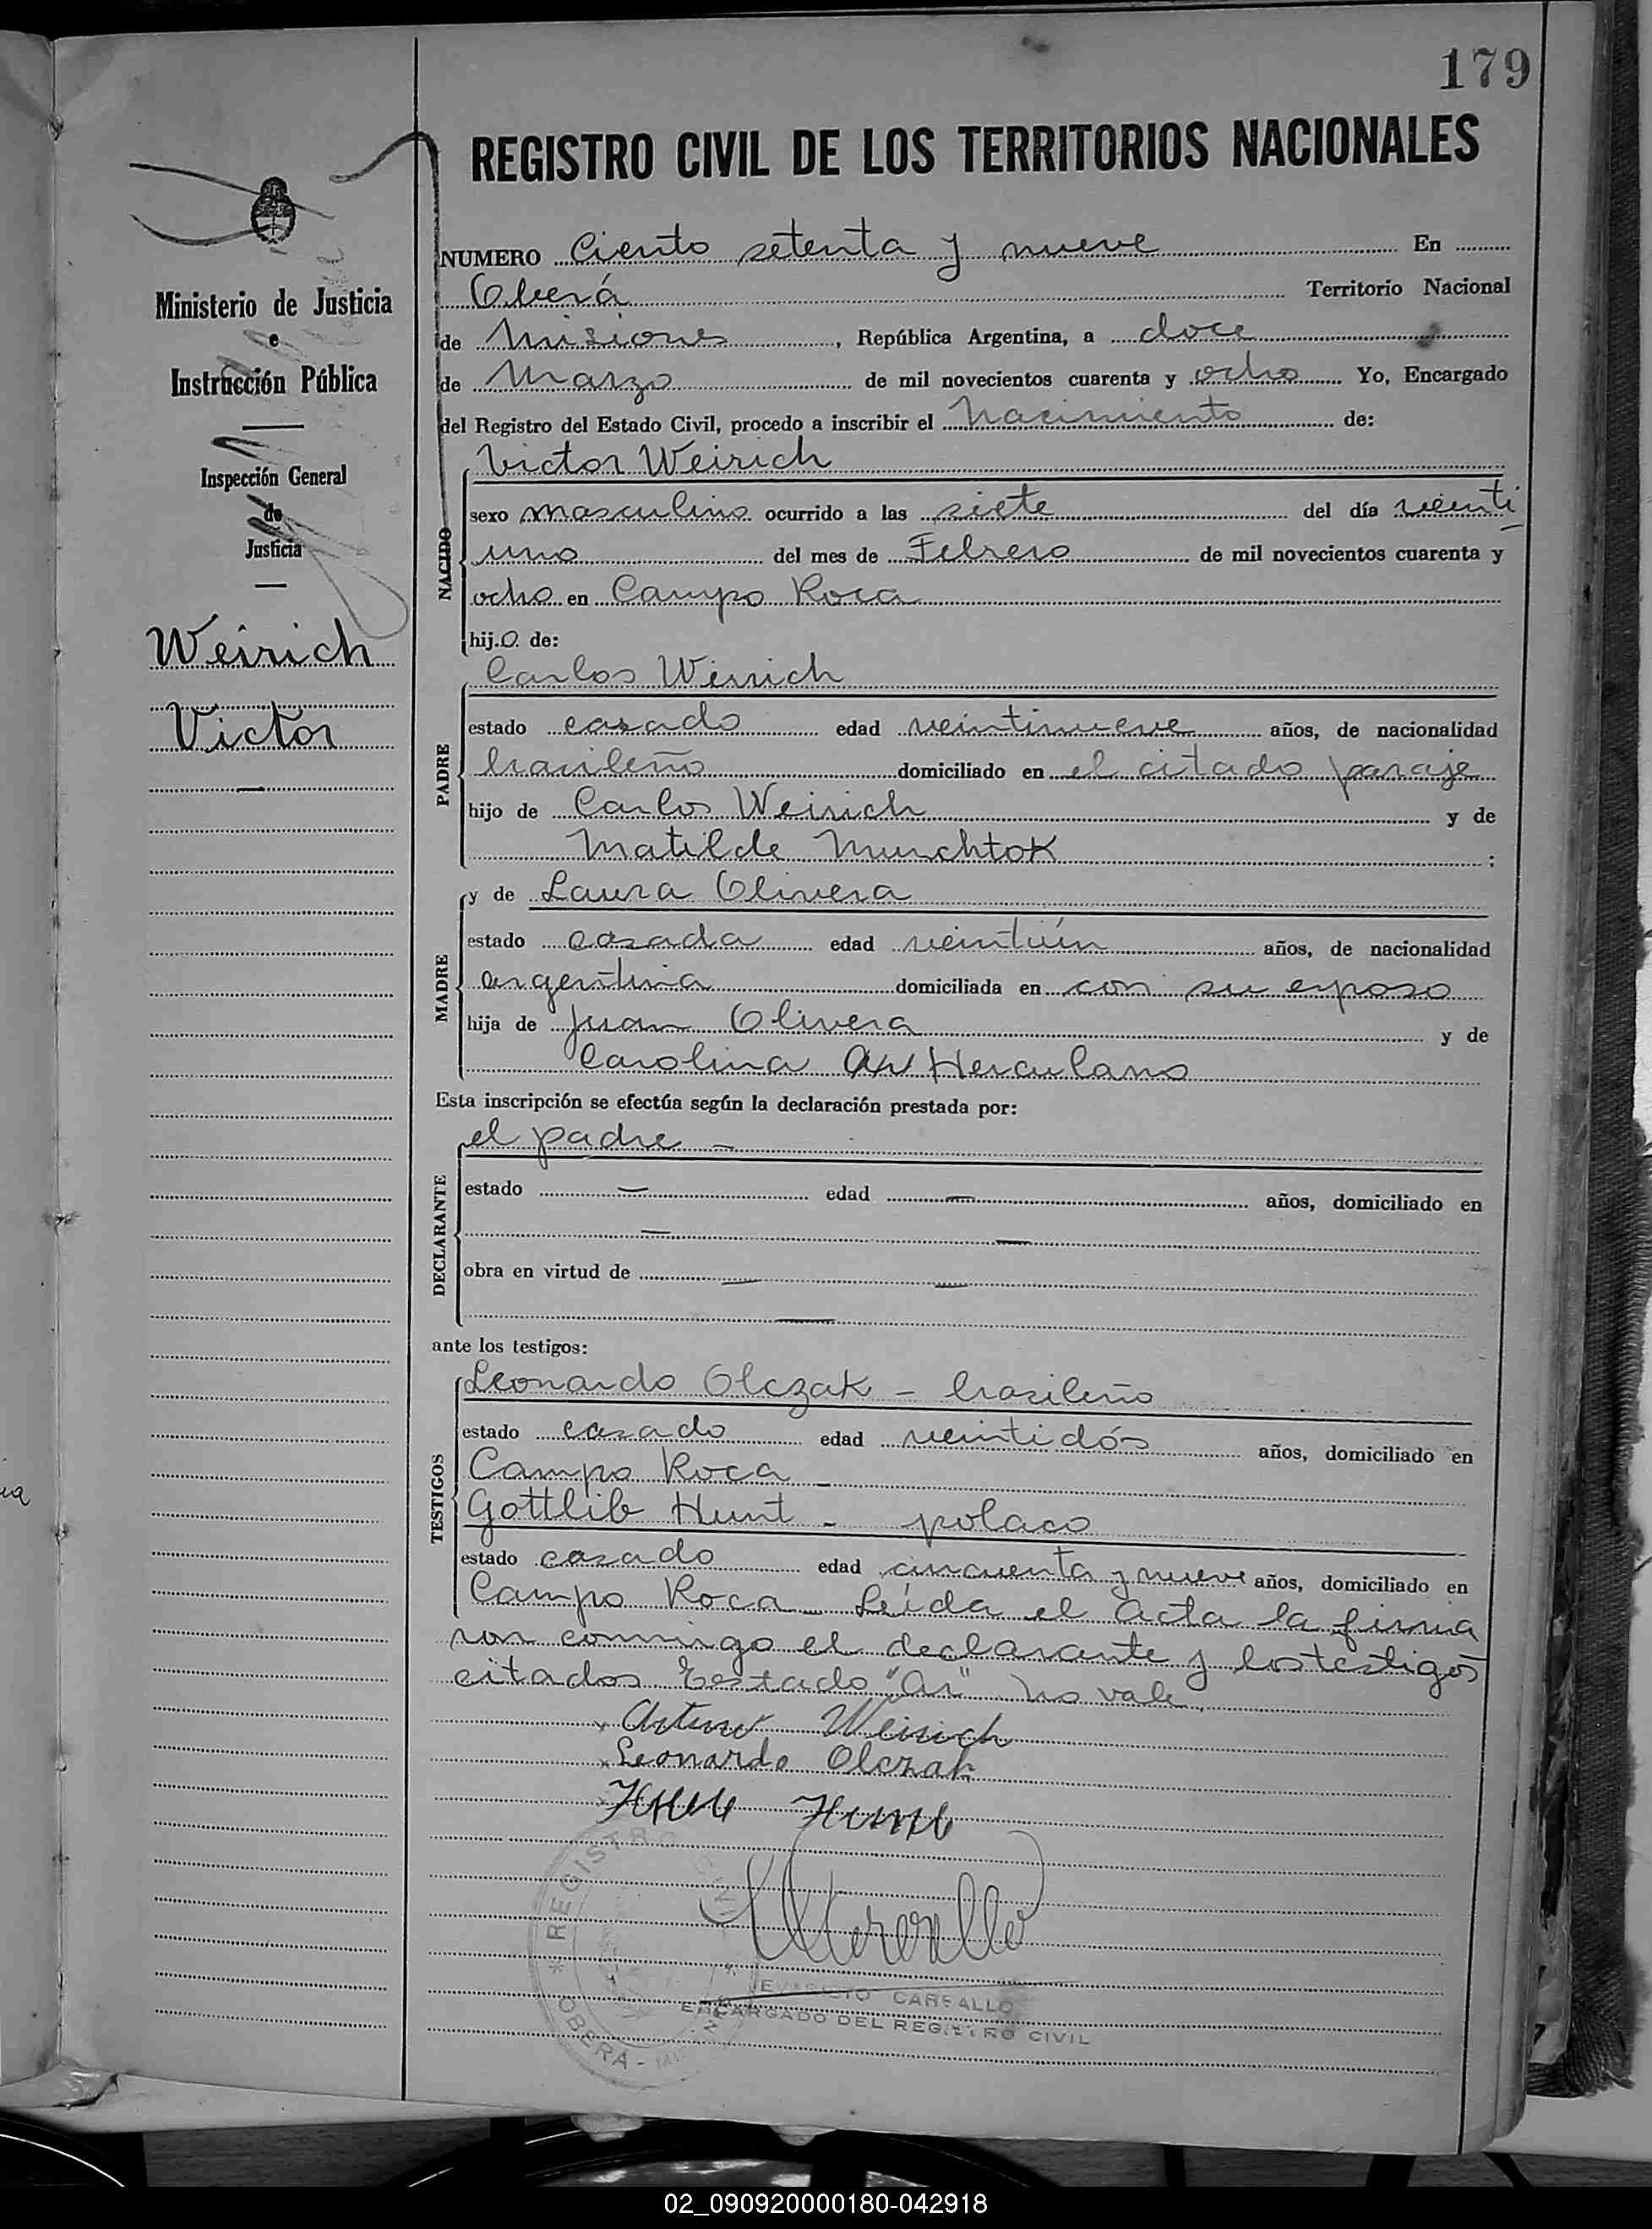 179
REGISTRO CIVIL DE LOS TERRITORIOS NACIONALES
Ministerio de Justicia
e
Instrucción Pública
Inspección General
de
Justicia
Weirich
Victor
NUMERO Ciento setenta y nueve En
Oberá Territorio Nacional
de Misiones, República Argentina, a doce
de Marzo de mil novecientos cuarenta y ocho Yo, Encargado
del Registro del Estado Civil, procedo a inscribir el Nacimiento de:
NACIDO
Victor Weirich
sexo masculino ocurrido a las siete del día veinti
uno del mes de Febrero de mil novecientos cuarenta y
ocho en Campo Roca
hij.o de:
PADRE
Carlos Weirich
estado casado edad veintinueve años, de nacionalidad
brasileño domiciliado en el citado paraje
hijo de Carlos Weirich y de
Matilde Munchtok ;
MADRE
y de Laura Olivera
estado casada edad veintiún años, de nacionalidad
argentina domiciliada en con su esposo
hija de Juan Olivera y de
Carolina Herculano
Esta inscripción se efectúa según la declaración prestada por:
DECLARANTE
el padre -
estado — edad — años, domiciliado en
— —
obra en virtud de — —
—
ante los testigos:
TESTIGOS
Leonardo Olczak - brasileño
estado casado edad veintidós años, domiciliado en
Campo Roca -
Gottlib Hunt - polaco
estado casado edad cincuenta y nueve años, domiciliado en
Campo Roca - Leída el acta la firma
ron conmigo el declarante y los testigos
citados Testado "An" no vale
Arturo Weirich
Leonardo Olczak
REGISTRO CIVIL
OBERA -
EVARISTO CARBALLO
ENCARGADO DEL REGISTRO CIVIL
02_090920000180-042918